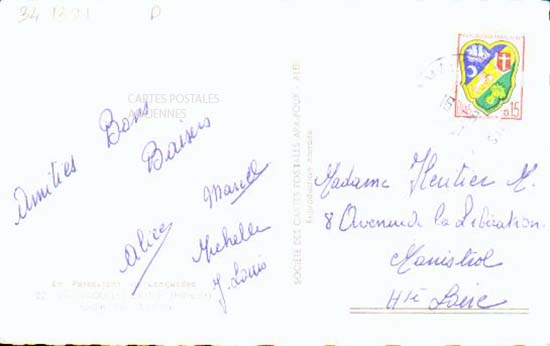 34 1321 D
CARTES POSTALES
ANCIENNES
Amitiés Bons
Baisers
Marcel
Alice Michelle
J. Louis
SOCIÉTÉ DES CARTES POSTALES
Reproduction interdite
RÉPUBLIQUE FRANÇAISE
0,15
Madame Heutier M.
8 Avenue de la Libération.
Monistrol
Hte Loire